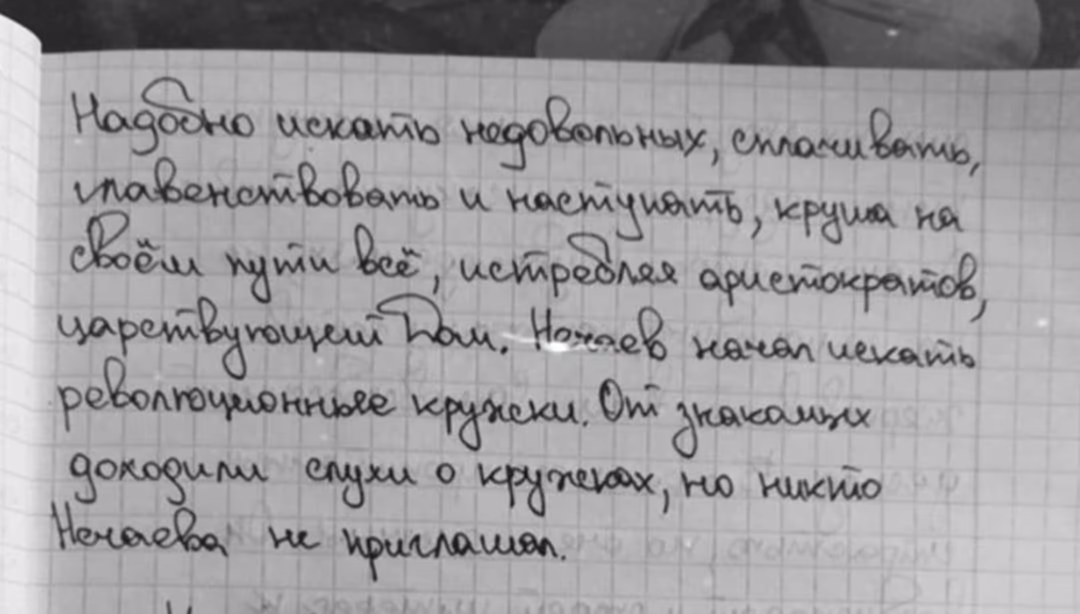 Надобно искать недовольных, сплачивать,
главенствовать и наступать, круша на
своём пути всё, истребляя аристократов,
царствующий Дом. Нечаев начал искать
революционные кружки. От знакомых
доходили слухи о кружках, но никто
Нечаева не приглашал.